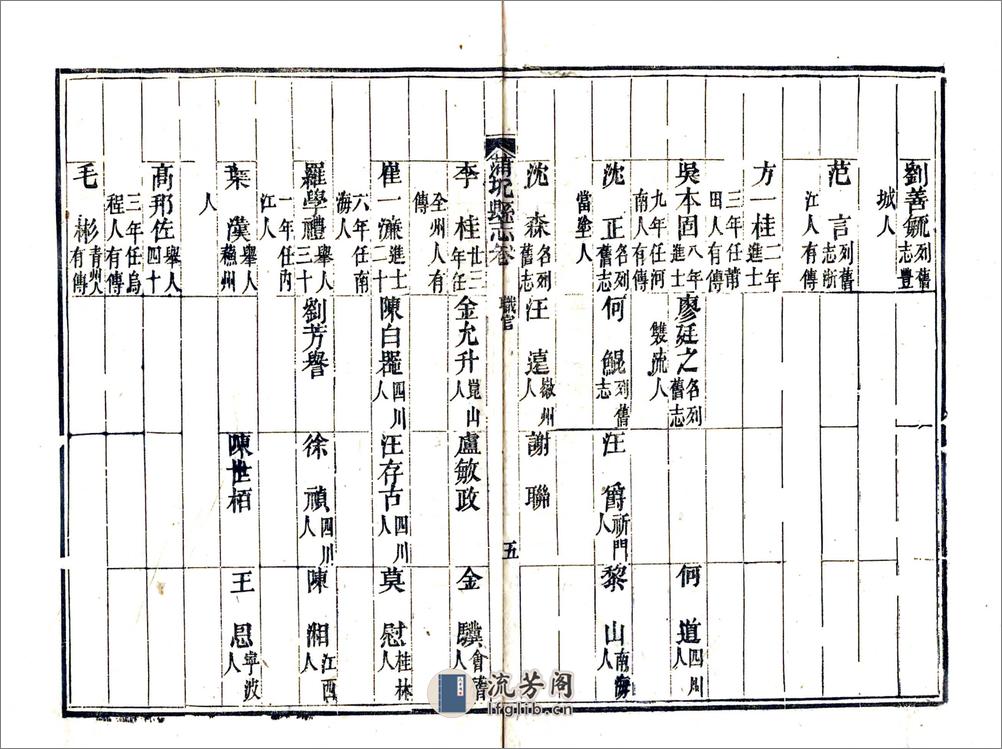 劉善毓列舊志豐
城人
范言列舊志浙
江人有傳
方一桂進士二年
三年任莆
田人有傳
吳本固進士八年
九年任河
南人有傳
廖廷之名列舊志
雙流人
何道四川人
沈正名列舊志
當塗人
何鯤列舊志
汪爵祈門人
黎山南海人
沈森名列舊志
汪遠徽州人
謝聯
蒲圻縣志卷 職官 五
李桂廿三年任
全州人有
傳
金允升崑山人
盧敏政
金驥會稽人
崔一濂進士二十
六年任南
海人
陳白四川人
汪存古四川人
莫慰桂林人
羅學禮舉人三十
一年任內
江人
劉芳譽
徐禎四川人
陳湘江西人
葉漢舉人蘄州
人
陳世栢
王恩寧波人
高邦佐舉人四十
三年任烏
程人有傳
毛彬青州人有傳
流芳阁
lfglib.cn